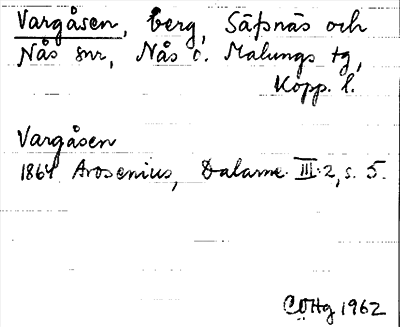 Vargåsen, berg, Säfsnäs och
Nås snr, Nås o. Malungs tg,
Kopp. l.
Vargåsen
1864 Arosenius, Dalarne III:2, s. 5.
COHg 1962